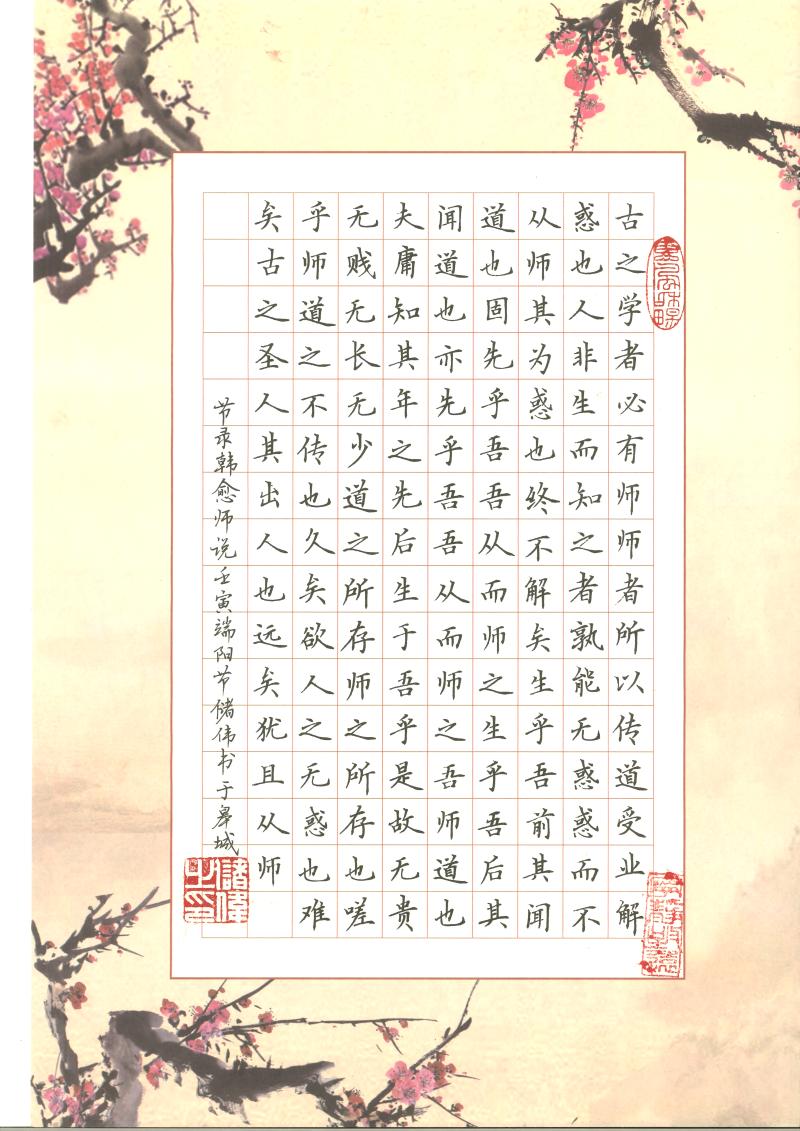 古之学者必有师师者所以传道受业解
惑也人非生而知之者孰能无惑惑而不
从师其为惑也终不解矣生乎吾前其闻
道也固先乎吾吾从而师之生乎吾后其
闻道也亦先乎吾吾从而师之吾师道也
夫庸知其年之先后生于吾乎是故无贵
无贱无长无少道之所存师之所存也嗟
乎师道之不传也久矣欲人之无惑也难
矣古之圣人其出人也远矣犹且从师
节录韩愈师说壬寅端阳节储伟书于皋城
儲偉之印